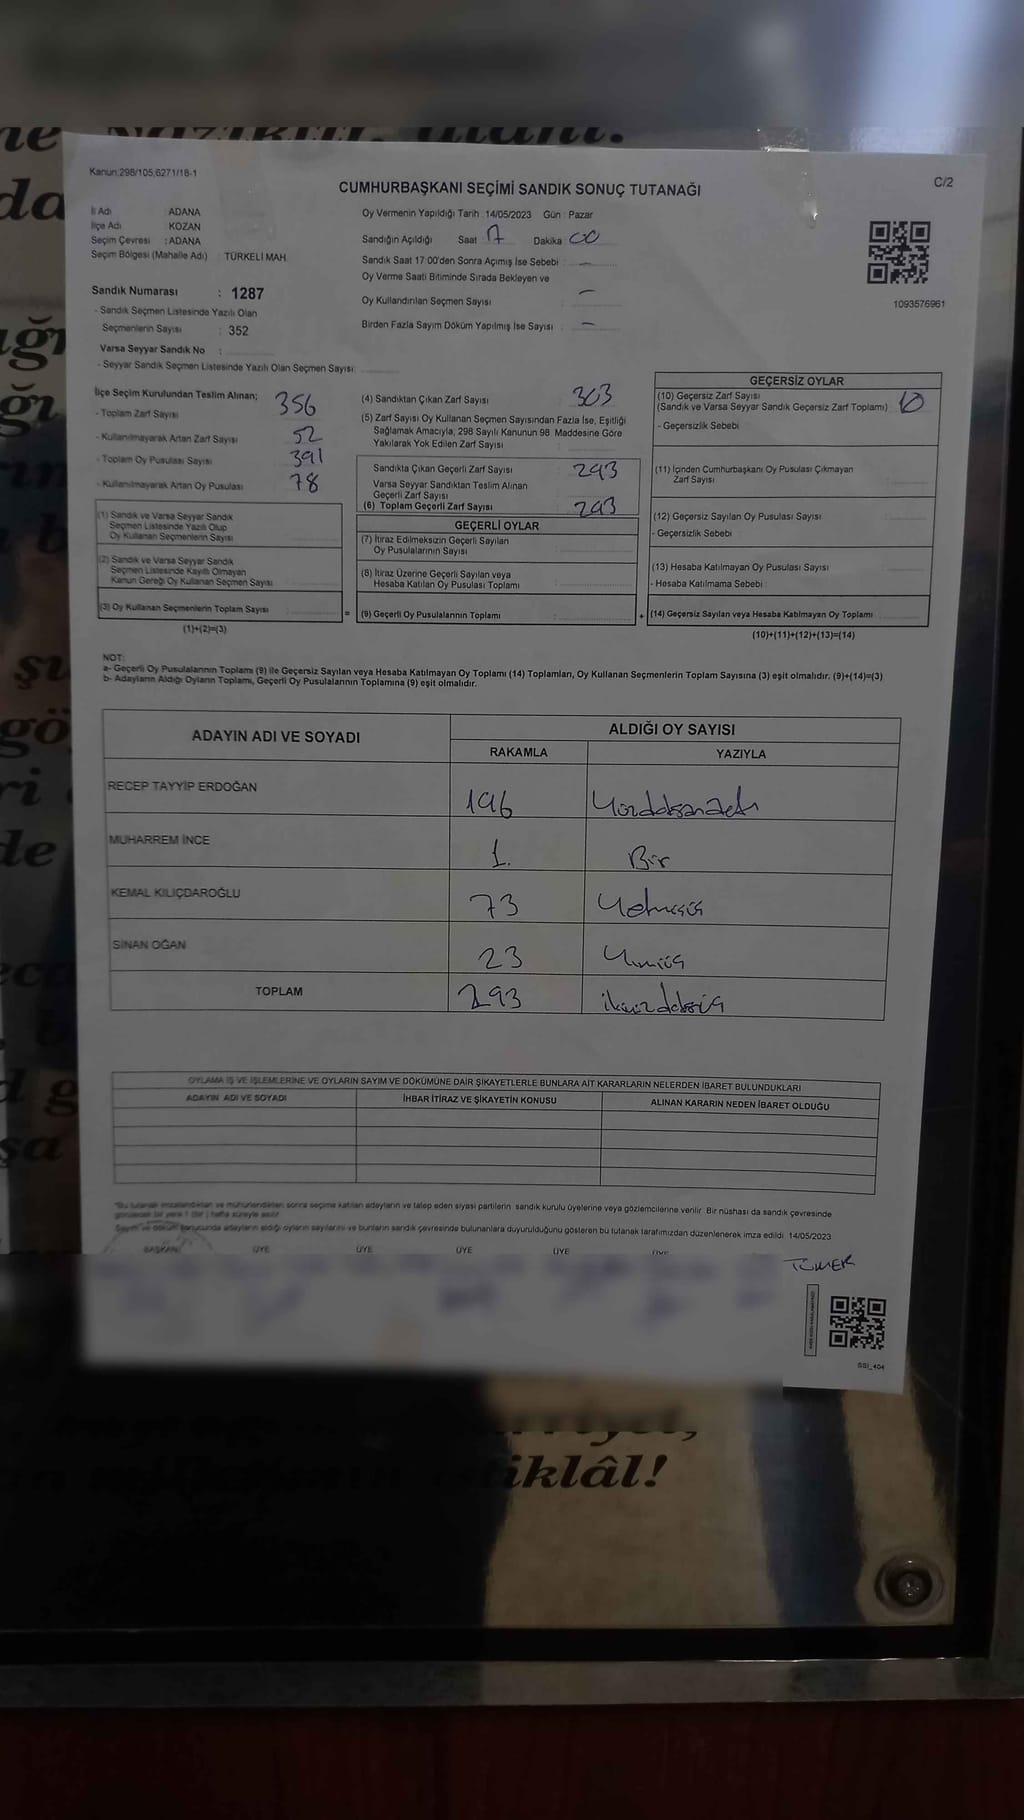 Kanun:298/105,6271/18-1
C/2
CUMHURBAŞKANI SEÇİMİ SANDIK SONUÇ TUTANAĞI
İl Adı : ADANA
İlçe Adı : KOZAN
Seçim Çevresi : ADANA
Seçim Bölgesi (Mahalle Adı) : TÜRKELİ MAH.
Sandık Numarası : 1287
- Sandık Seçmen Listesinde Yazılı Olan
Seçmenlerin Sayısı : 352
Varsa Seyyar Sandık No :
- Seyyar Sandık Seçmen Listesinde Yazılı Olan Seçmen Sayısı:
Oy Vermenin Yapıldığı Tarih 14/05/2023 Gün : Pazar
Sandığın Açıldığı Saat 17 Dakika 00
Sandık Saat 17:00'den Sonra Açımış İse Sebebi : —
Oy Verme Saati Bitiminde Sırada Bekleyen ve
Oy Kullandırılan Seçmen Sayısı : —
Birden Fazla Sayım Döküm Yapılmış İse Sayısı : —
1093576961
İlçe Seçim Kurulundan Teslim Alınan;
- Toplam Zarf Sayısı 356
- Kullanılmayarak Artan Zarf Sayısı 52
- Toplam Oy Pusulası Sayısı 391
- Kullanılmayarak Artan Oy Pusulası 78
(1) Sandık ve Varsa Seyyar Sandık
Seçmen Listesinde Yazılı Olup
Oy Kullanan Seçmenlerin Sayısı
(2) Sandık ve Varsa Seyyar Sandık
Seçmen Listesinde Kayıtlı Olmayan
Kanun Gereği Oy Kullanan Seçmen Sayısı
(3) Oy Kullanan Seçmenlerin Toplam Sayısı
(1)+(2)=(3)
(4) Sandıktan Çıkan Zarf Sayısı 303
(5) Zarf Sayısı Oy Kullanan Seçmen Sayısından Fazla İse, Eşitliği
Sağlamak Amacıyla, 298 Sayılı Kanunun 98. Maddesine Göre
Yakılarak Yok Edilen Zarf Sayısı :
Sandıkta Çıkan Geçerli Zarf Sayısı 293
Varsa Seyyar Sandıktan Teslim Alınan
Geçerli Zarf Sayısı
(6) Toplam Geçerli Zarf Sayısı 293
GEÇERLİ OYLAR
(7) İtiraz Edilmeksizin Geçerli Sayılan
Oy Pusulalarının Sayısı
(8) İtiraz Üzerine Geçerli Sayılan veya
Hesaba Katılan Oy Pusulası Toplamı
(9) Geçerli Oy Pusulalarının Toplamı
GEÇERSİZ OYLAR
(10) Geçersiz Zarf Sayısı
(Sandık ve Varsa Seyyar Sandık Geçersiz Zarf Toplamı) : 10
- Geçersizlik Sebebi
(11) İçinden Cumhurbaşkanı Oy Pusulası Çıkmayan
Zarf Sayısı
(12) Geçersiz Sayılan Oy Pusulası Sayısı
- Geçersizlik Sebebi
(13) Hesaba Katılmayan Oy Pusulası Sayısı
- Hesaba Katılmama Sebebi
(14) Geçersiz Sayılan veya Hesaba Katılmayan Oy Toplamı
(10)+(11)+(12)+(13)=(14)
NOT:
a- Geçerli Oy Pusulalarının Toplamı (9) ile Geçersiz Sayılan veya Hesaba Katılmayan Oy Toplamı (14) Toplamları, Oy Kullanan Seçmenlerin Toplam Sayısına (3) eşit olmalıdır. (9)+(14)=(3)
b- Adayların Aldığı Oyların Toplamı, Geçerli Oy Pusulalarının Toplamına (9) eşit olmalıdır.
ADAYIN ADI VE SOYADI
ALDIĞI OY SAYISI
RAKAMLA YAZIYLA
RECEP TAYYİP ERDOĞAN 196 Yüzdoksanaltı
MUHARREM İNCE 1. Bir
KEMAL KILIÇDAROĞLU 73 Yetmişüç
SİNAN OĞAN 23 Yirmiüç
TOPLAM 293 ikiyüzdoksanüç
OYLAMA İŞ VE İŞLEMLERİNE VE OYLARIN SAYIM VE DÖKÜMÜNE DAİR ŞİKAYETLERLE BUNLARA AİT KARARLARIN NELERDEN İBARET BULUNDUKLARI
ADAYIN ADI VE SOYADI
İHBAR İTİRAZ VE ŞİKAYETİN KONUSU
ALINAN KARARIN NEDEN İBARET OLDUĞU
*Bu tutanak imzalandıktan ve mühürlendikten sonra seçime katılan adayların ve talep eden siyasi partilerin sandık kurulu üyelerine veya gözlemcilerine verilir. Bir nüshası da sandık çevresinde
görülecek bir yere 1 (bir) hafta süreyle asılır.
Sayım ve döküm sonucunda adayların aldığı oyların sayılarını ve bunların sandık çevresinde bulunanlara duyurulduğunu gösteren bu tutanak tarafımızdan düzenlenerek imza edildi 14/05/2023
BAŞKAN ÜYE ÜYE ÜYE ÜYE ÜYE
TÜMER
SSI_404
iklâl!